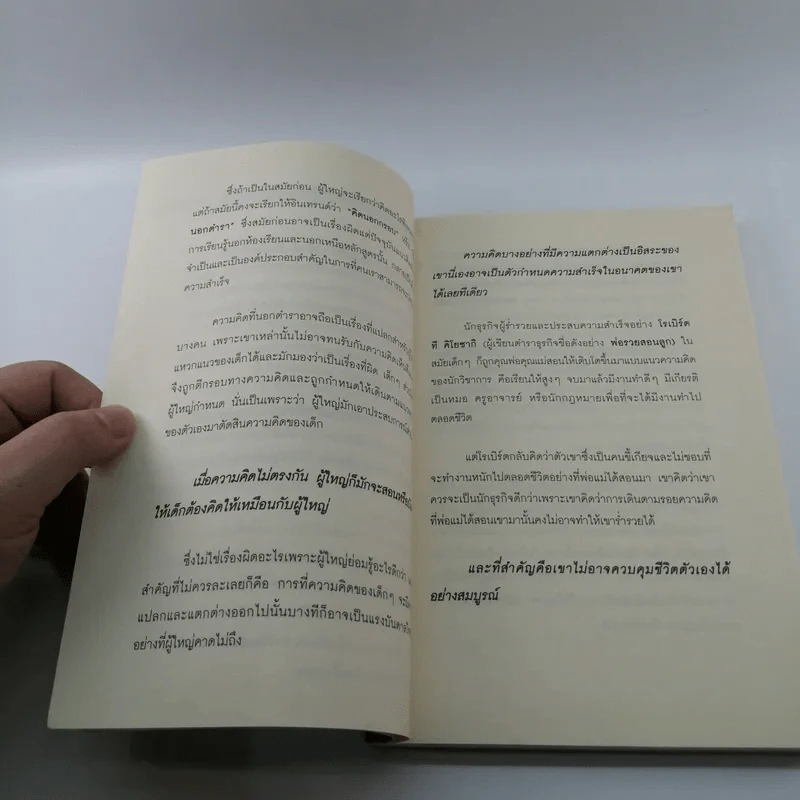 ซึ่งถ้าเป็นในสมัยก่อน ผู้ใหญ่จะเรียกว่าคิดอะไร
แต่ถ้าสมัยนี้คงจะเรียกให้อินเทรนด์ว่า “คิดนอกกรอบ”
นอกตำรา” ซึ่งสมัยก่อนอาจเป็นเรื่องผิดแต่ปัจจุบัน
การเรียนรู้นอกห้องเรียนและนอกเหนือหลักสูตรนั้น
จำเป็นและเป็นองค์ประกอบสำคัญในการที่คนเราสามารถ
ความสำเร็จ
ความคิดที่นอกตำราอาจถือเป็นเรื่องที่แปลกสำหรับ
บางคน เพราะเขาเหล่านั้นไม่อาจทนรับกับความคิด
แหวกแนวของเด็กได้และมักมองว่าเป็นเรื่องที่ผิด เด็กๆ
จึงถูกตีกรอบทางความคิดและถูกกำหนดให้เดินตาม
ผู้ใหญ่กำหนด นั่นเป็นเพราะว่า ผู้ใหญ่มักเอาประสบการณ์
ของตัวเองมาตัดสินความคิดของเด็ก
เมื่อความคิดไม่ตรงกัน ผู้ใหญ่ก็มักจะสอน
ให้เด็กต้องคิดให้เหมือนกับผู้ใหญ่
ซึ่งไม่ใช่เรื่องผิดอะไรเพราะผู้ใหญ่ย่อมรู้อะไรดีกว่า
สำคัญที่ไม่ควรละเลยก็คือ การที่ความคิดของเด็กๆ จะ
แปลกและแตกต่างออกไปนั้นบางทีก็อาจเป็นแรงบันดาล
อย่างที่ผู้ใหญ่คาดไม่ถึง
ความคิดบางอย่างที่มีความแตกต่างเป็นอิสระของ
เขานี่เองอาจเป็นตัวกำหนดความสำเร็จในอนาคตของเขา
ได้เลยทีเดียว
นักธุรกิจผู้ร่ำรวยและประสบความสำเร็จอย่าง โรเบิร์ต
ที คิโยซากิ (ผู้เขียนตำราธุรกิจชื่อดังอย่าง พ่อรวยสอนลูก) ใน
สมัยเด็กๆ ก็ถูกคุณพ่อคุณแม่สอนให้เติบโตขึ้นมาแบบแนวความคิด
ของนักวิชาการ คือเรียนให้สูงๆ จบมาแล้วมีงานทำดีๆ มีเกียรติ
เป็นหมอ ครูอาจารย์ หรือนักกฎหมายเพื่อที่จะได้มีงานทำไป
ตลอดชีวิต
แต่โรเบิร์ตกลับคิดว่าตัวเขาซึ่งเป็นคนขี้เกียจและไม่ชอบที่
จะทำงานหนักไปตลอดชีวิตอย่างที่พ่อแม่ได้สอนมา เขาคิดว่าเขา
ควรจะเป็นนักธุรกิจดีกว่าเพราะเขาคิดว่าการเดินตามรอยความคิด
ที่พ่อแม่ได้สอนเขามานั้นคงไม่อาจทำให้เขาร่ำรวยได้
และที่สำคัญคือเขาไม่อาจควบคุมชีวิตตัวเองได้
อย่างสมบูรณ์